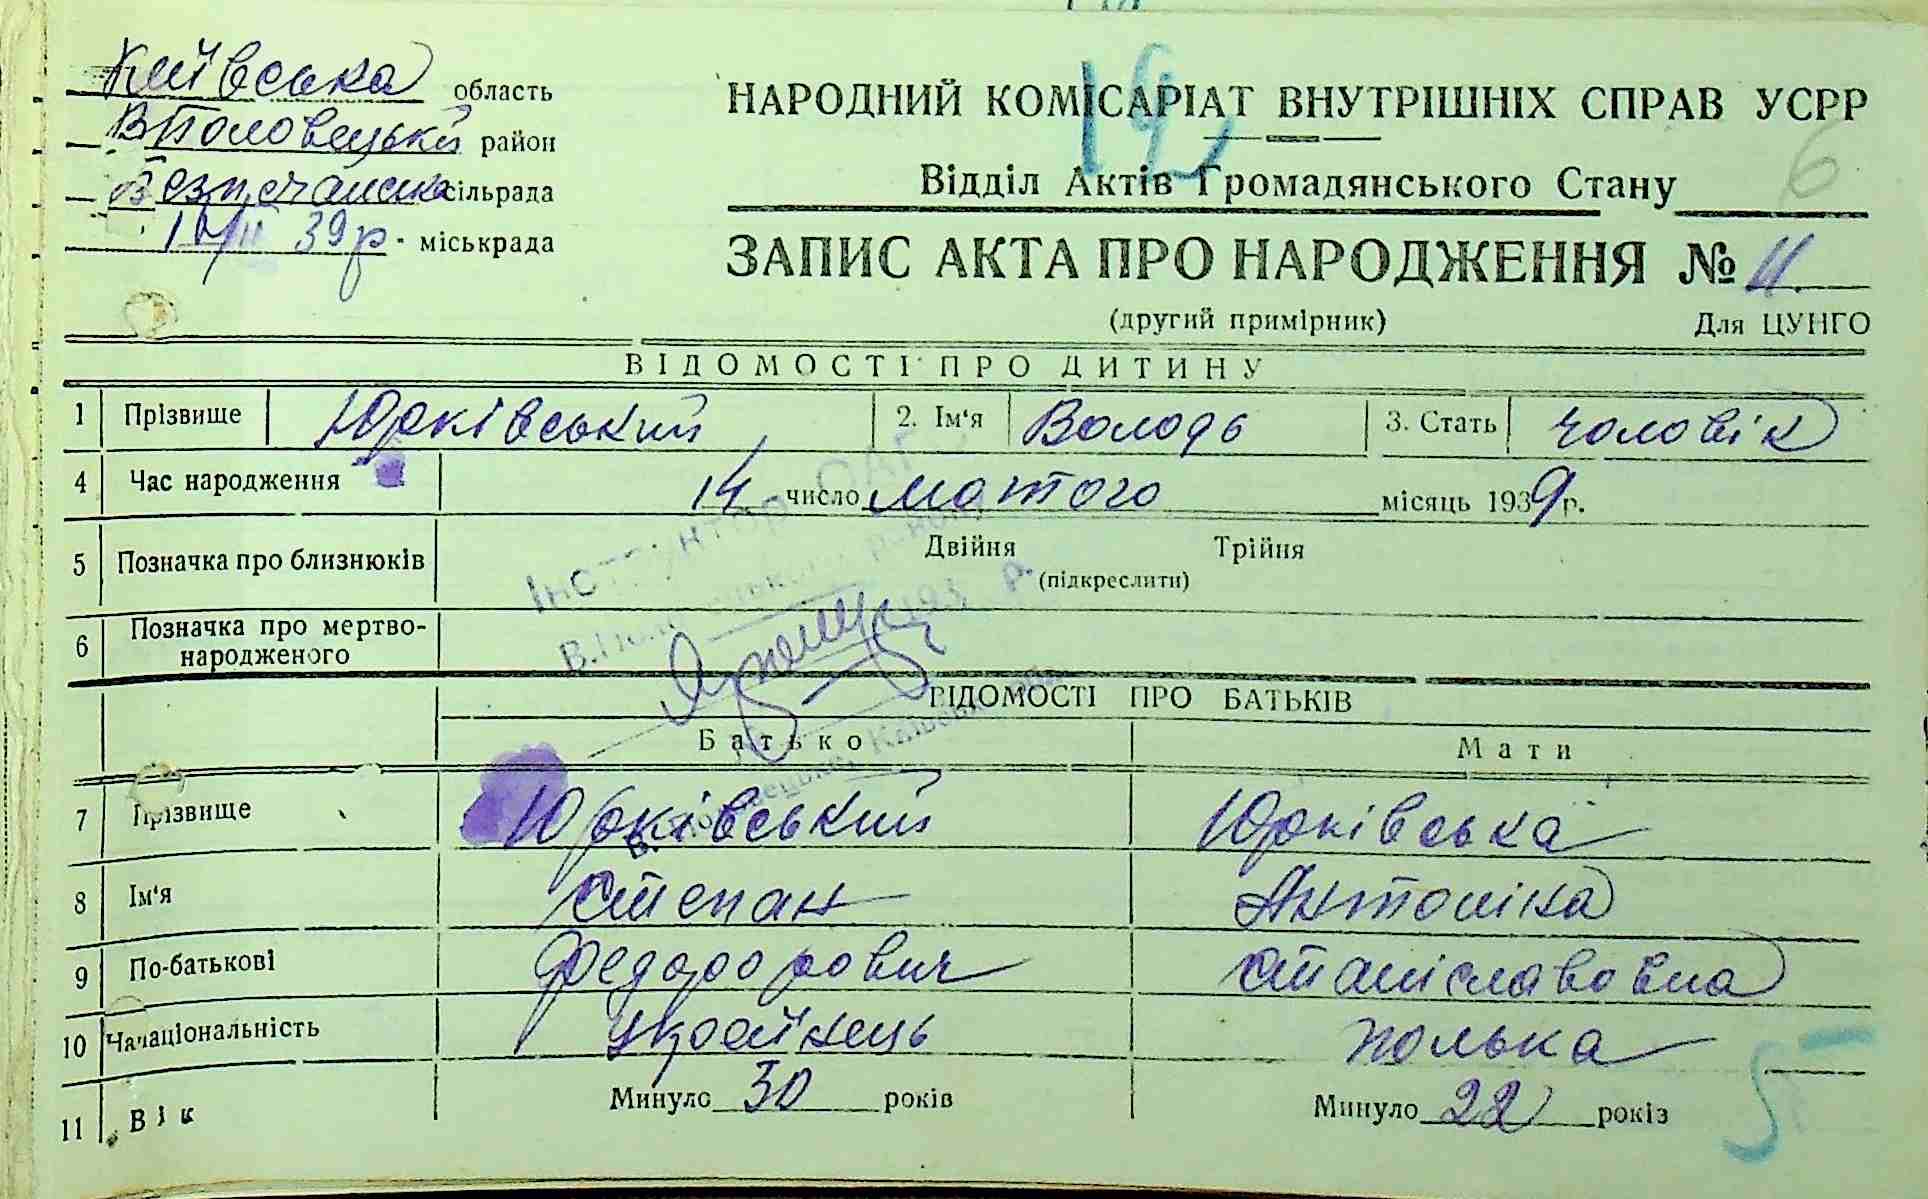 Київська область
В Половецький район
Безпечанська сільрада
39 р. міськрада
19
НАРОДНИЙ КОМІСАРІАТ ВНУТРІШНІХ СПРАВ УСРР
6
Відділ Актів Громадянського Стану
ЗАПИС АКТА ПРО НАРОДЖЕННЯ № 11
(другий примірник) Для ЦУНГО
ВІДОМОСТІ ПРО ДИТИНУ
1 Прізвище Юрківський 2. Ім'я Володь 3. Стать чоловік
4 Час народження 14 число лютого місяць 1939 р.
5 Позначка про близнюків Двійня Трійня
(підкреслити)
6 Позначка про мертво-
народженого
ВІДОМОСТІ ПРО БАТЬКІВ
Батько Мати
7 Прізвище Юрківський Юрківська
8 Ім'я Степан Антоніна
9 По-батькові Федорович Станіславовна
10 Національність українець полька
11 Вік Минуло 30 років Минуло 22 років
5